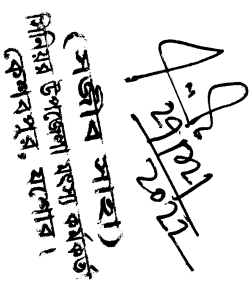 2022
(সজীব সাহা)
সিনিয়র উপজেলা মৎস্য কর্মকর্তা
কেশবপুর, যশোর।